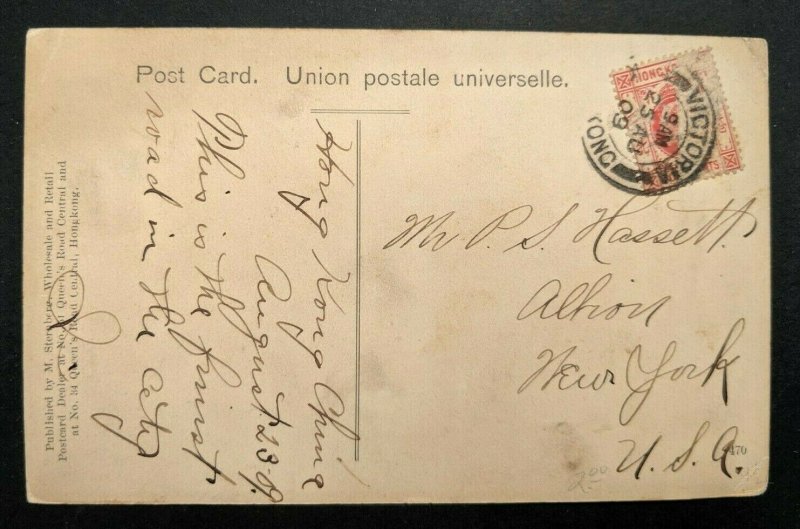 Post Card. Union postale universelle.
HONGKONG
VICTORIA
9 AM
25 AU
09
KONG
Hong Kong China
August 23-09.
This is the finest
road in the City
Mr P. S. Hassett.
Albion
New York
U.S.A.
Published by M. Sternberg, Wholesale and Retail
Postcard Dealer at No. 51 Queen's Road Central and
at No. 34 Queen's Road Central, Hongkong.
2.00